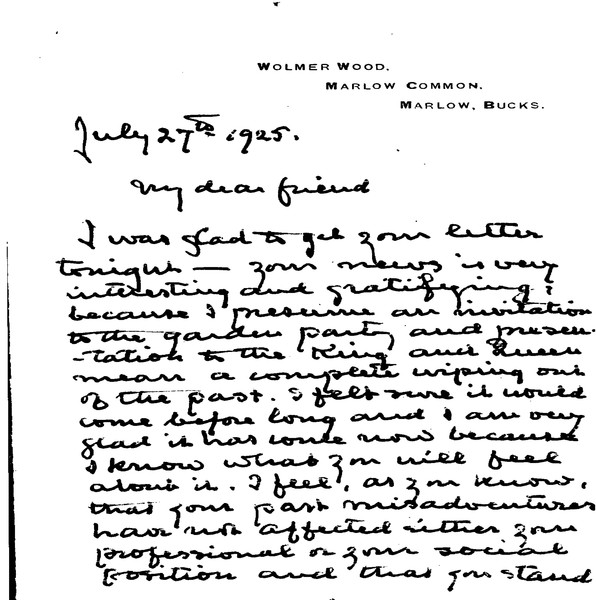 WOLMER WOOD,
MARLOW COMMON,
MARLOW, BUCKS.
July 27th 1925.
My dear friend
I was glad to get your letter
tonight — your news is very
interesting and gratifying :
because I presume an invitation
to the garden party and presen-
-tation to the King and Queen
mean a complete wiping out
of the past. I felt sure it would
come before long and I am very
glad it has come now because
I know what you will feel
about it. I feel, as you know,
that your past misadventures
have not affected either your
professional or your social
position and that you stand